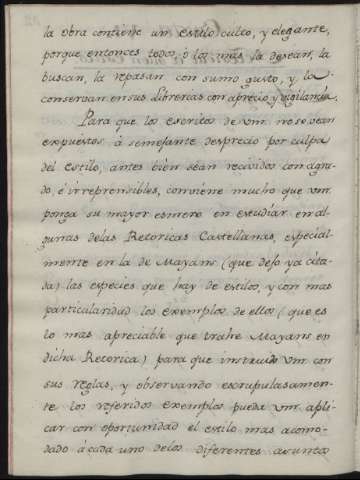 la obra contiene un estilo culto, y elegante,
porque entonces todos, ò los mas la desean, la
buscan, la repasan con sumo gusto, y la
conservan en sus Librerias con aprecio y vigilancia.
Para que los escritos de Vm. no se vean
expuestos à semejante desprecio por culpa
del estilo, antes bien sean recividos con agra-
do, è irreprensibles, conviene mucho que Vm.
ponga su mayor esmero en estudiar en al-
gunas de las Retoricas Castellanas, especial-
mente en la de Mayans (que dejo ya cita-
da) las especies que hay de estilos, y con mas
particularidad los exemplos de ellos (que es
lo mas apreciable que trahe Mayans en
dicha Retorica) para que instruido Vm. con
sus reglas, y observando escrupulosamen-
te los referidos exemplos pueda Vm. apli-
car con oportunidad el estilo mas acomo-
dado à cada uno de los diferentes asuntos